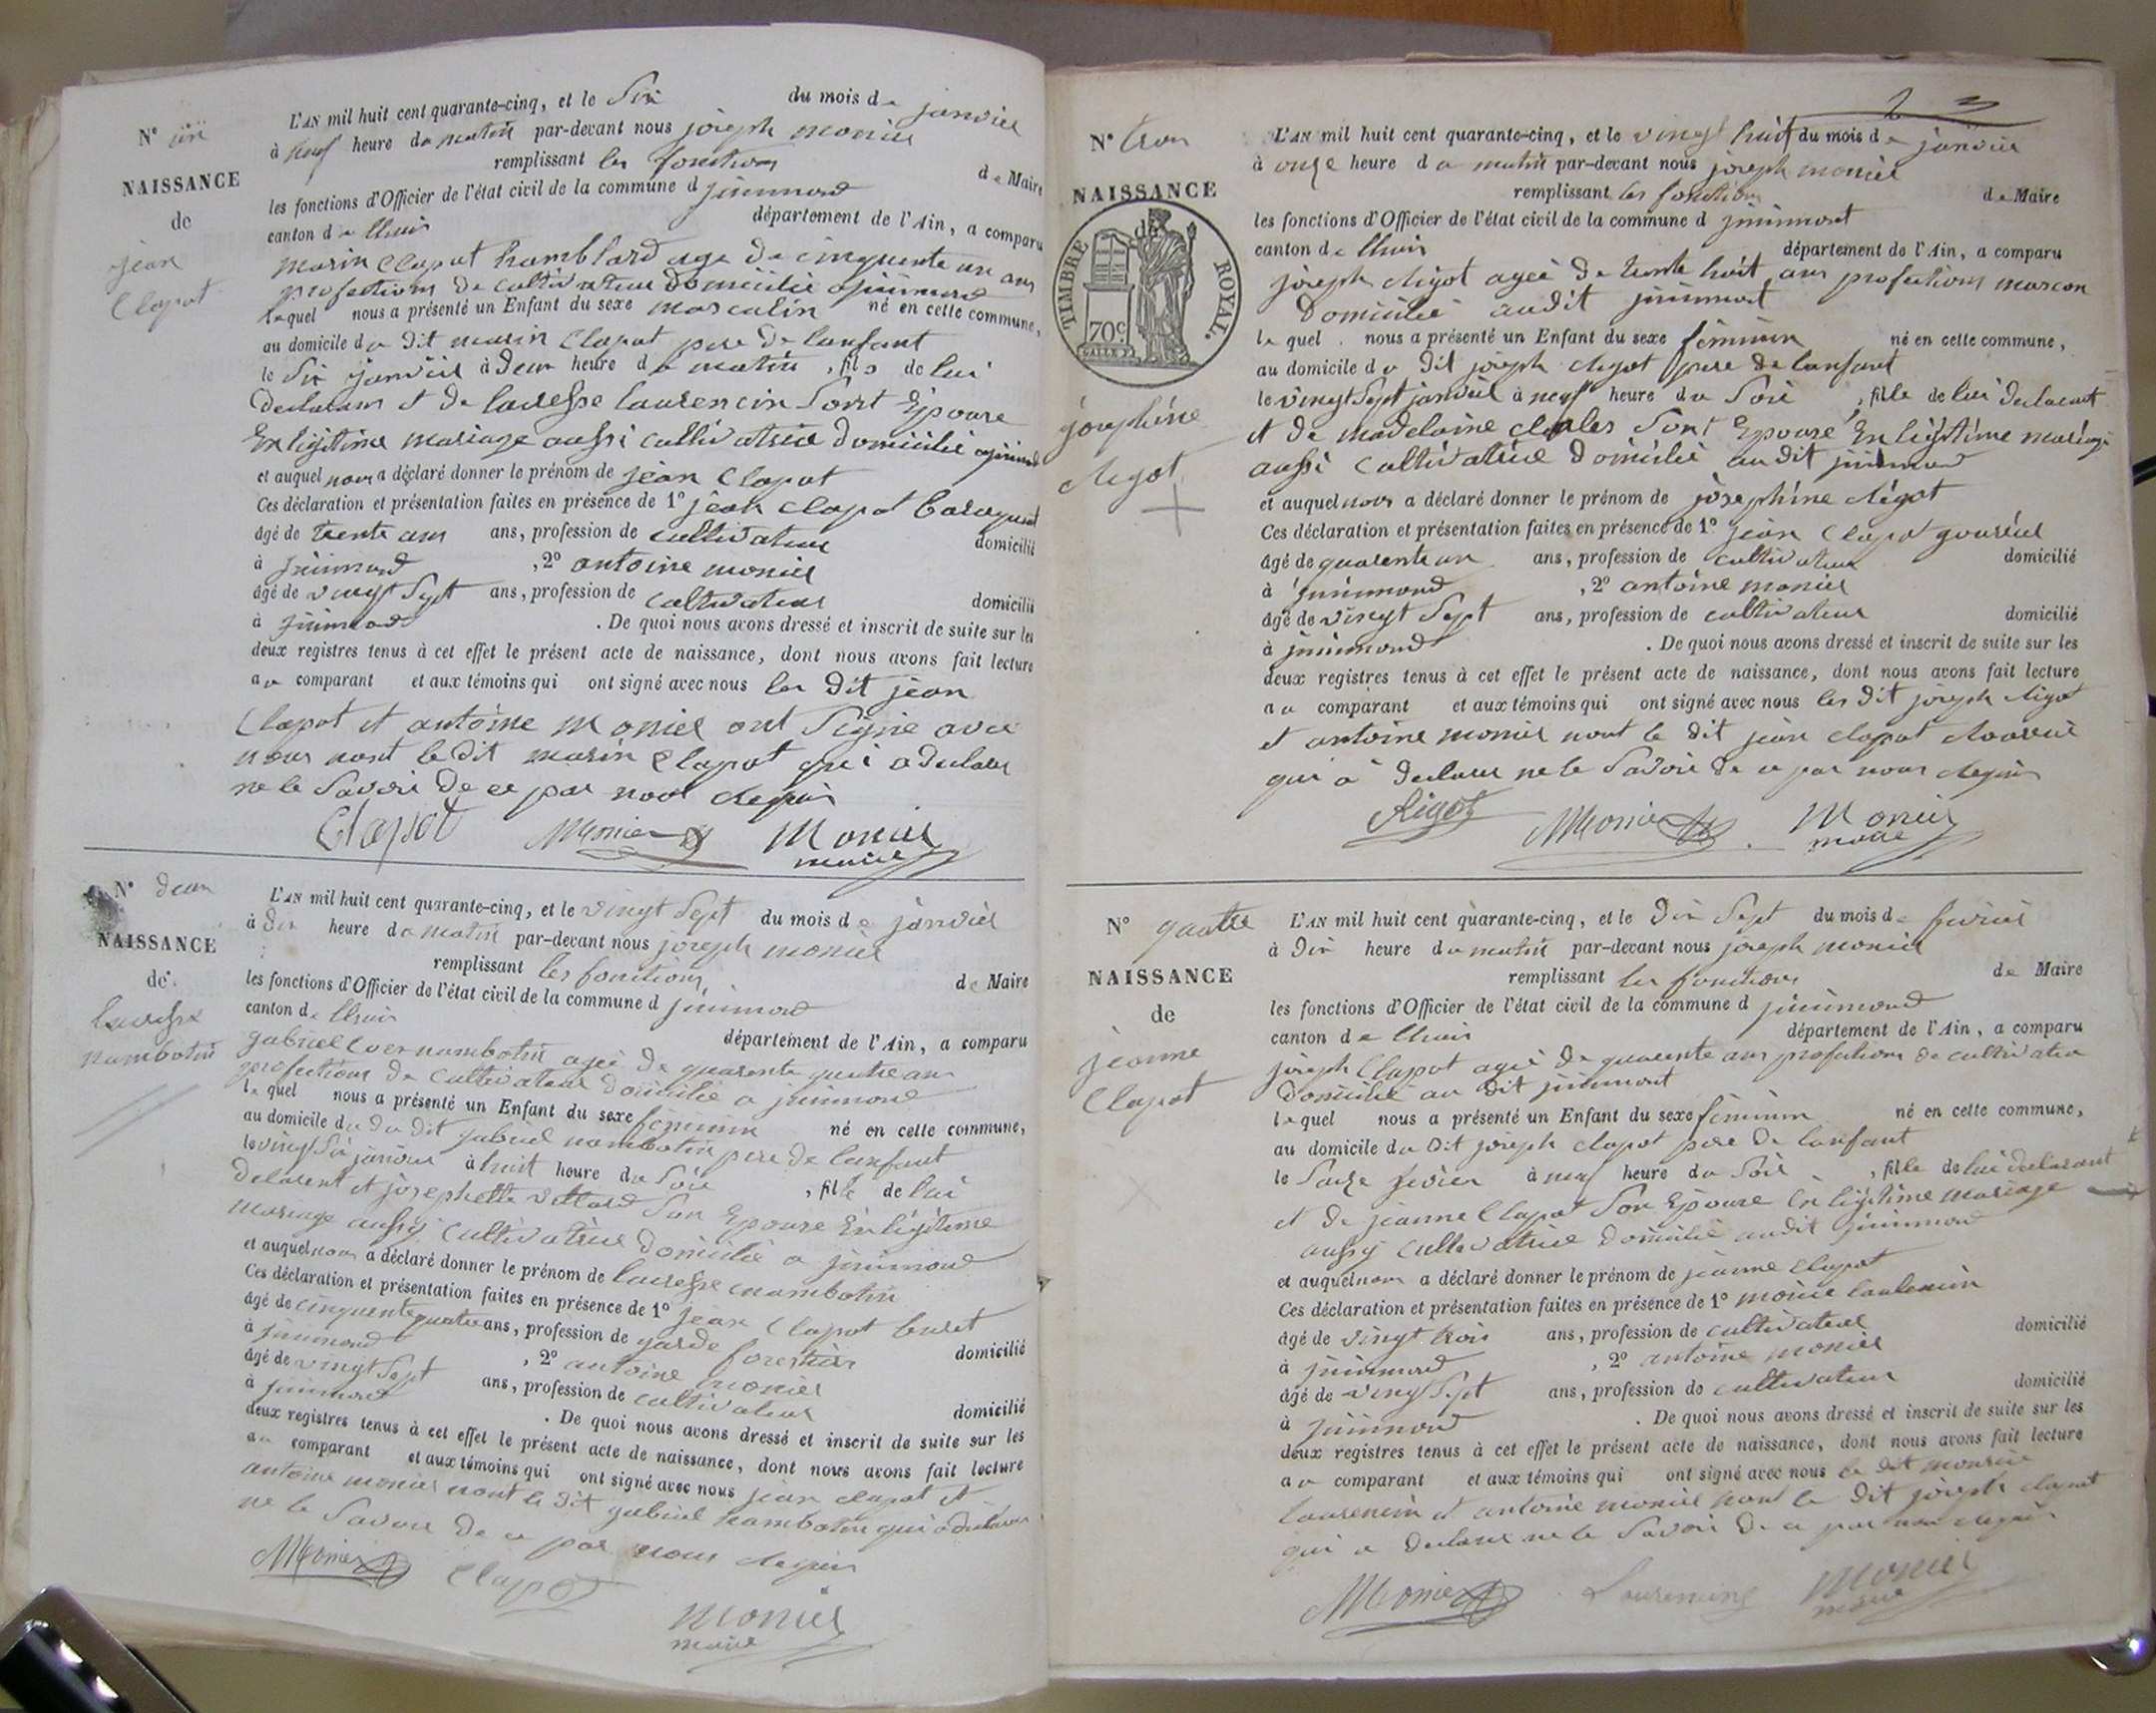 N° un
NAISSANCE
de
jean
Clapot
L'AN mil huit cent quarante-cinq, et le Six du mois de janvier
à neuf heure du matin par-devant nous joseph monier
remplissant les fonctions de Maire
les fonctions d'Officier de l'état civil de la commune d jnimond
canton de Lhuis département de l'Ain, a comparu
marin Clapot hamblard age de cinquente un ans
profections de cultivateur domicilié a jnimond
lequel nous a présenté un Enfant du sexe masculin né en cette commune,
au domicile du dit marin Clapot pere de lanfant
le Six janvier à deux heure du matin , fils de lui
declarans et de lauresse laurencin Sont Epouse
En ligitime mariage aussi cultivatrice domicilié a jnimond
et auquel nous a déclaré donner le prénom de jean Clapot
Ces déclaration et présentation faites en présence de 1° jean Clapot
âgé de trente ans ans, profession de cultivateur domicilié
à jnimond , 2° antoine monier
âgé de vingt Sept ans, profession de cultivateur domicilié
à jnimond . De quoi nous avons dressé et inscrit de suite sur les
deux registres tenus à cet effet le présent acte de naissance, dont nous avons fait lecture
au comparant et aux témoins qui ont signé avec nous les dit jean
Clapot et antoine monier ont Signe avec
nous nont le dit marin Clapot qui a declarer
ne le Savoir de ce par nous requis
Clapot Monier Monier
maire
N° deux
NAISSANCE
de
lauresse
nambotin
L'AN mil huit cent quarante-cinq, et le vingt Sept du mois de janvier
à dix heure du matin par-devant nous joseph monier
remplissant les fonctions de Maire
les fonctions d'Officier de l'état civil de la commune d jnimond
canton de Lhuis département de l'Ain, a comparu
gabriel nambotin ageé de quarente quatre ans
profections de cultivateur domicilié a jnimond
lequel nous a présenté un Enfant du sexe féminin né en cette commune,
au domicile du du dit gabriel nambotin pere de lanfant
le vingt Six janvier à huit heure du Soir , fille de lui
delarent et josephette vettard Son Epouse En légitime
mariage aussy cultivatrice domicilié a jnimond
et auquel nous a déclaré donner le prénom de lauresse nambotin
Ces déclaration et présentation faites en présence de 1° jean Clapot curet
âgé de cinquente quatre ans, profession de garde forestier domicilié
à jnimond , 2° antoine monier
âgé de vingt Sept ans, profession de cultivateur domicilié
à jnimond . De quoi nous avons dressé et inscrit de suite sur les
deux registres tenus à cet effet le présent acte de naissance, dont nous avons fait lecture
au comparant et aux témoins qui ont signé avec nous jean clapot et
antoine monier nont le dit gabriel nambotin qui a declarer
ne le Savoir de ce par nous requis
Monier Clapot
Monier
maire
2
N° trois
NAISSANCE
de
TIMBRE ROYAL.
70c
josephine
Rigot
L'AN mil huit cent quarante-cinq, et le vingt huit du mois de janvier
à onze heure du matin par-devant nous joseph monier
remplissant les fonctions de Maire
les fonctions d'Officier de l'état civil de la commune d jnimont
canton de Lhuis département de l'Ain, a comparu
joseph Rigot ageé de trente huit ans profections mascon
domicilié audit jnimont
lequel nous a présenté un Enfant du sexe féminin né en cette commune,
au domicile du dit joseph Rigot pere de lanfant
le vingt Sept janvier à neuf heure du Soir , fille de lui declarent
et de madelaine Sont Epouse En légitime mariage
aussi cultivatrice domicilié audit jnimond
et auquel nous a déclaré donner le prénom de josephine Rigot
Ces déclaration et présentation faites en présence de 1° jean Clapot
âgé de quarente un ans, profession de cultivateur domicilié
à jnimond , 2° antoine monier
âgé de vingt Sept ans, profession de cultivateur domicilié
à jnimond . De quoi nous avons dressé et inscrit de suite sur les
deux registres tenus à cet effet le présent acte de naissance, dont nous avons fait lecture
au comparant et aux témoins qui ont signé avec nous les dit joseph Rigot
et antoine monier nont le dit jean clapot
qui a declarer ne le Savoir de ce par nous requis
Rigot Monier Monier
maire
N° quatre
NAISSANCE
de
jeanne
Clapot
L'AN mil huit cent quarante-cinq, et le dix Sept du mois de fevrier
à dix heure du matin par-devant nous joseph monier
remplissant les fonctions de Maire
les fonctions d'Officier de l'état civil de la commune d jnimond
canton de Lhuis département de l'Ain, a comparu
joseph Clapot ageé de quarente ans profections de cultivateur
domicilié au dit jnimont
lequel nous a présenté un Enfant du sexe féminin né en cette commune,
au domicile du dit joseph clapot pere de lanfant
le Saize fevrier à neuf heure du Soir , fille de lui declarant
et de jeanne Clapot Son Epouse En légitime mariage
aussy cultivatrice domicilié audit jnimond
et auquel nous a déclaré donner le prénom de jeanne Clapot
Ces déclaration et présentation faites en présence de 1° laurencin
âgé de vingt trois ans, profession de cultivateur domicilié
à jnimond , 2° antoine monier
âgé de vingt Sept ans, profession de cultivateur domicilié
à jnimond . De quoi nous avons dressé et inscrit de suite sur les
deux registres tenus à cet effet le présent acte de naissance, dont nous avons fait lecture
au comparant et aux témoins qui ont signé avec nous le dit
laurencin et antoine monier nont le dit joseph clapot
qui a declarer ne le Savoir de ce par nous requis
Monier Monier
maire